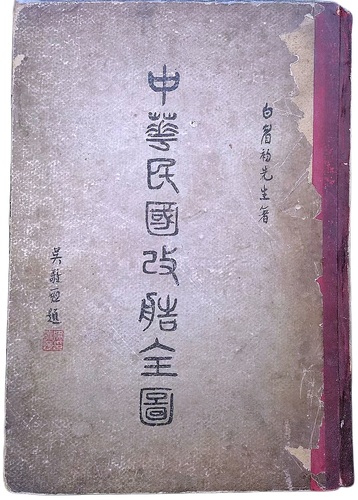 白眉初先生著
中華民國改造全圖
吳敬恆題